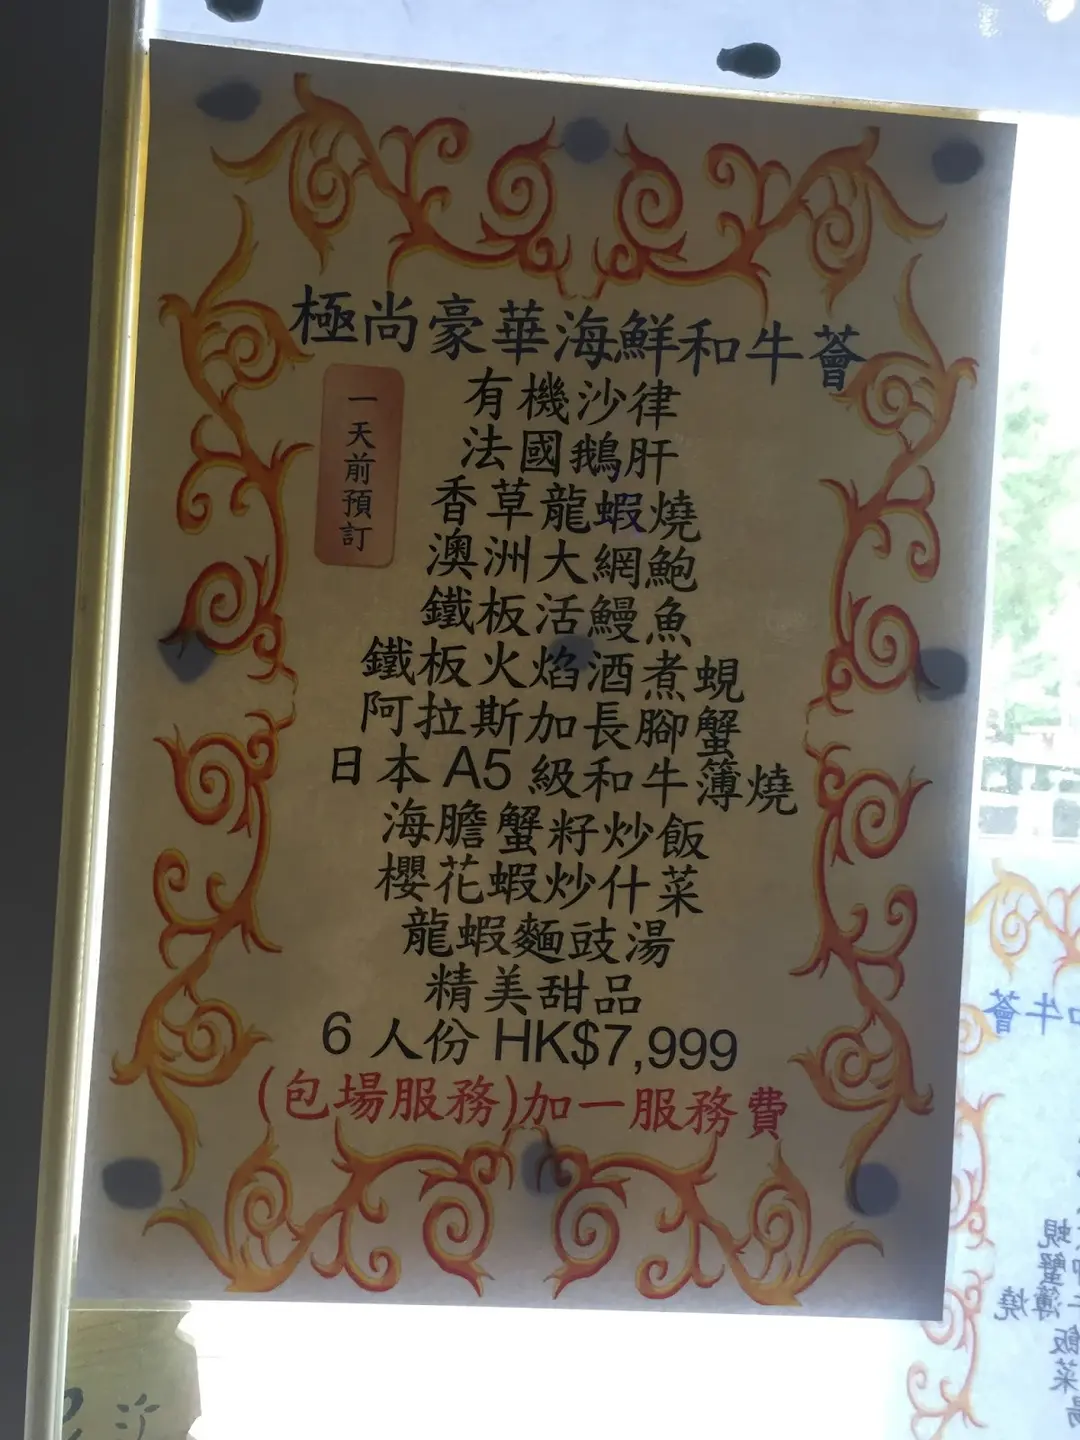 極尚豪華海鮮和牛薈
一天前預訂
有機沙律
法國鵝肝
香草龍蝦燒
澳洲大網鮑
鐵板活鰻魚
鐵板火焰酒煮蜆
阿拉斯加長腳蟹
日本A5級和牛簿燒
海膽蟹籽炒飯
櫻花蝦炒什菜
龍蝦麵豉湯
精美甜品
6人份 HK$7,999
(包場服務)加一服務費
和牛薈
蜆
蟹
簿燒
飯
菜
湯